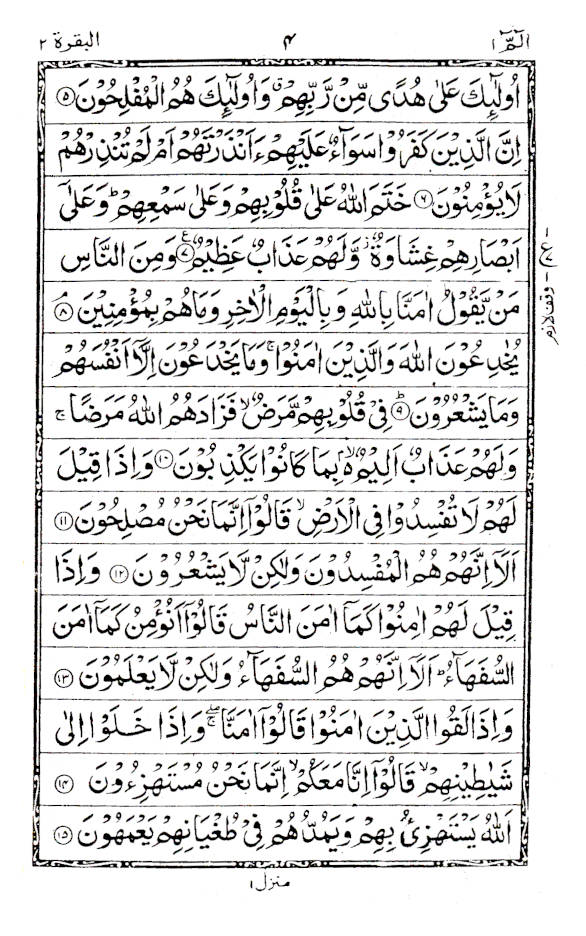 الٓمّٓ ١
۴
البقرة ٢
اُولٰٓئِكَ عَلٰى هُدًى مِّنْ رَّبِّهِمْ ۗ وَاُولٰٓئِكَ هُمُ الْمُفْلِحُوْنَ ۝۵
اِنَّ الَّذِيْنَ كَفَرُوْا سَوَآءٌ عَلَيْهِمْ ءَاَنْذَرْتَهُمْ اَمْ لَمْ تُنْذِرْهُمْ
لَا يُؤْمِنُوْنَ ۝۶ خَتَمَ اللّٰهُ عَلٰى قُلُوْبِهِمْ وَعَلٰى سَمْعِهِمْ ؕ وَعَلٰٓى
اَبْصَارِهِمْ غِشَاوَةٌ ۫ وَّلَهُمْ عَذَابٌ عَظِيْمٌ ۝۷ ع وَمِنَ النَّاسِ
مَنْ يَّقُوْلُ اٰمَنَّا بِاللّٰهِ وَبِالْيَوْمِ الْاٰخِرِ وَمَا هُمْ بِمُؤْمِنِيْنَ ۘ ۝۸
يُخٰدِعُوْنَ اللّٰهَ وَالَّذِيْنَ اٰمَنُوْا ۚ وَمَا يَخْدَعُوْنَ اِلَّآ اَنْفُسَهُمْ
وَمَا يَشْعُرُوْنَ ؕ ۝۹ فِيْ قُلُوْبِهِمْ مَّرَضٌ ۙ فَزَادَهُمُ اللّٰهُ مَرَضًا ۚ
وَلَهُمْ عَذَابٌ اَلِيْمٌ ۢ ۙ۬ بِمَا كَانُوْا يَكْذِبُوْنَ ۝۱۰ وَاِذَا قِيْلَ
لَهُمْ لَا تُفْسِدُوْا فِى الْاَرْضِ ۙ قَالُوْٓا اِنَّمَا نَحْنُ مُصْلِحُوْنَ ۝۱۱
اَلَآ اِنَّهُمْ هُمُ الْمُفْسِدُوْنَ وَلٰكِنْ لَّا يَشْعُرُوْنَ ۝۱۲ وَاِذَا
قِيْلَ لَهُمْ اٰمِنُوْا كَمَآ اٰمَنَ النَّاسُ قَالُوْٓا اَنُؤْمِنُ كَمَآ اٰمَنَ
السُّفَهَآءُ ؕ اَلَآ اِنَّهُمْ هُمُ السُّفَهَآءُ وَلٰكِنْ لَّا يَعْلَمُوْنَ ۝۱۳
وَاِذَا لَقُوا الَّذِيْنَ اٰمَنُوْا قَالُوْٓا اٰمَنَّا ۖۚ وَاِذَا خَلَوْا اِلٰى
شَيٰطِيْنِهِمْ ۙ قَالُوْٓا اِنَّا مَعَكُمْ ۙ اِنَّمَا نَحْنُ مُسْتَهْزِءُوْنَ ۝۱۴
اَللّٰهُ يَسْتَهْزِئُ بِهِمْ وَيَمُدُّهُمْ فِيْ طُغْيَانِهِمْ يَعْمَهُوْنَ ۝۱۵
وقف لازم
منزل ۱